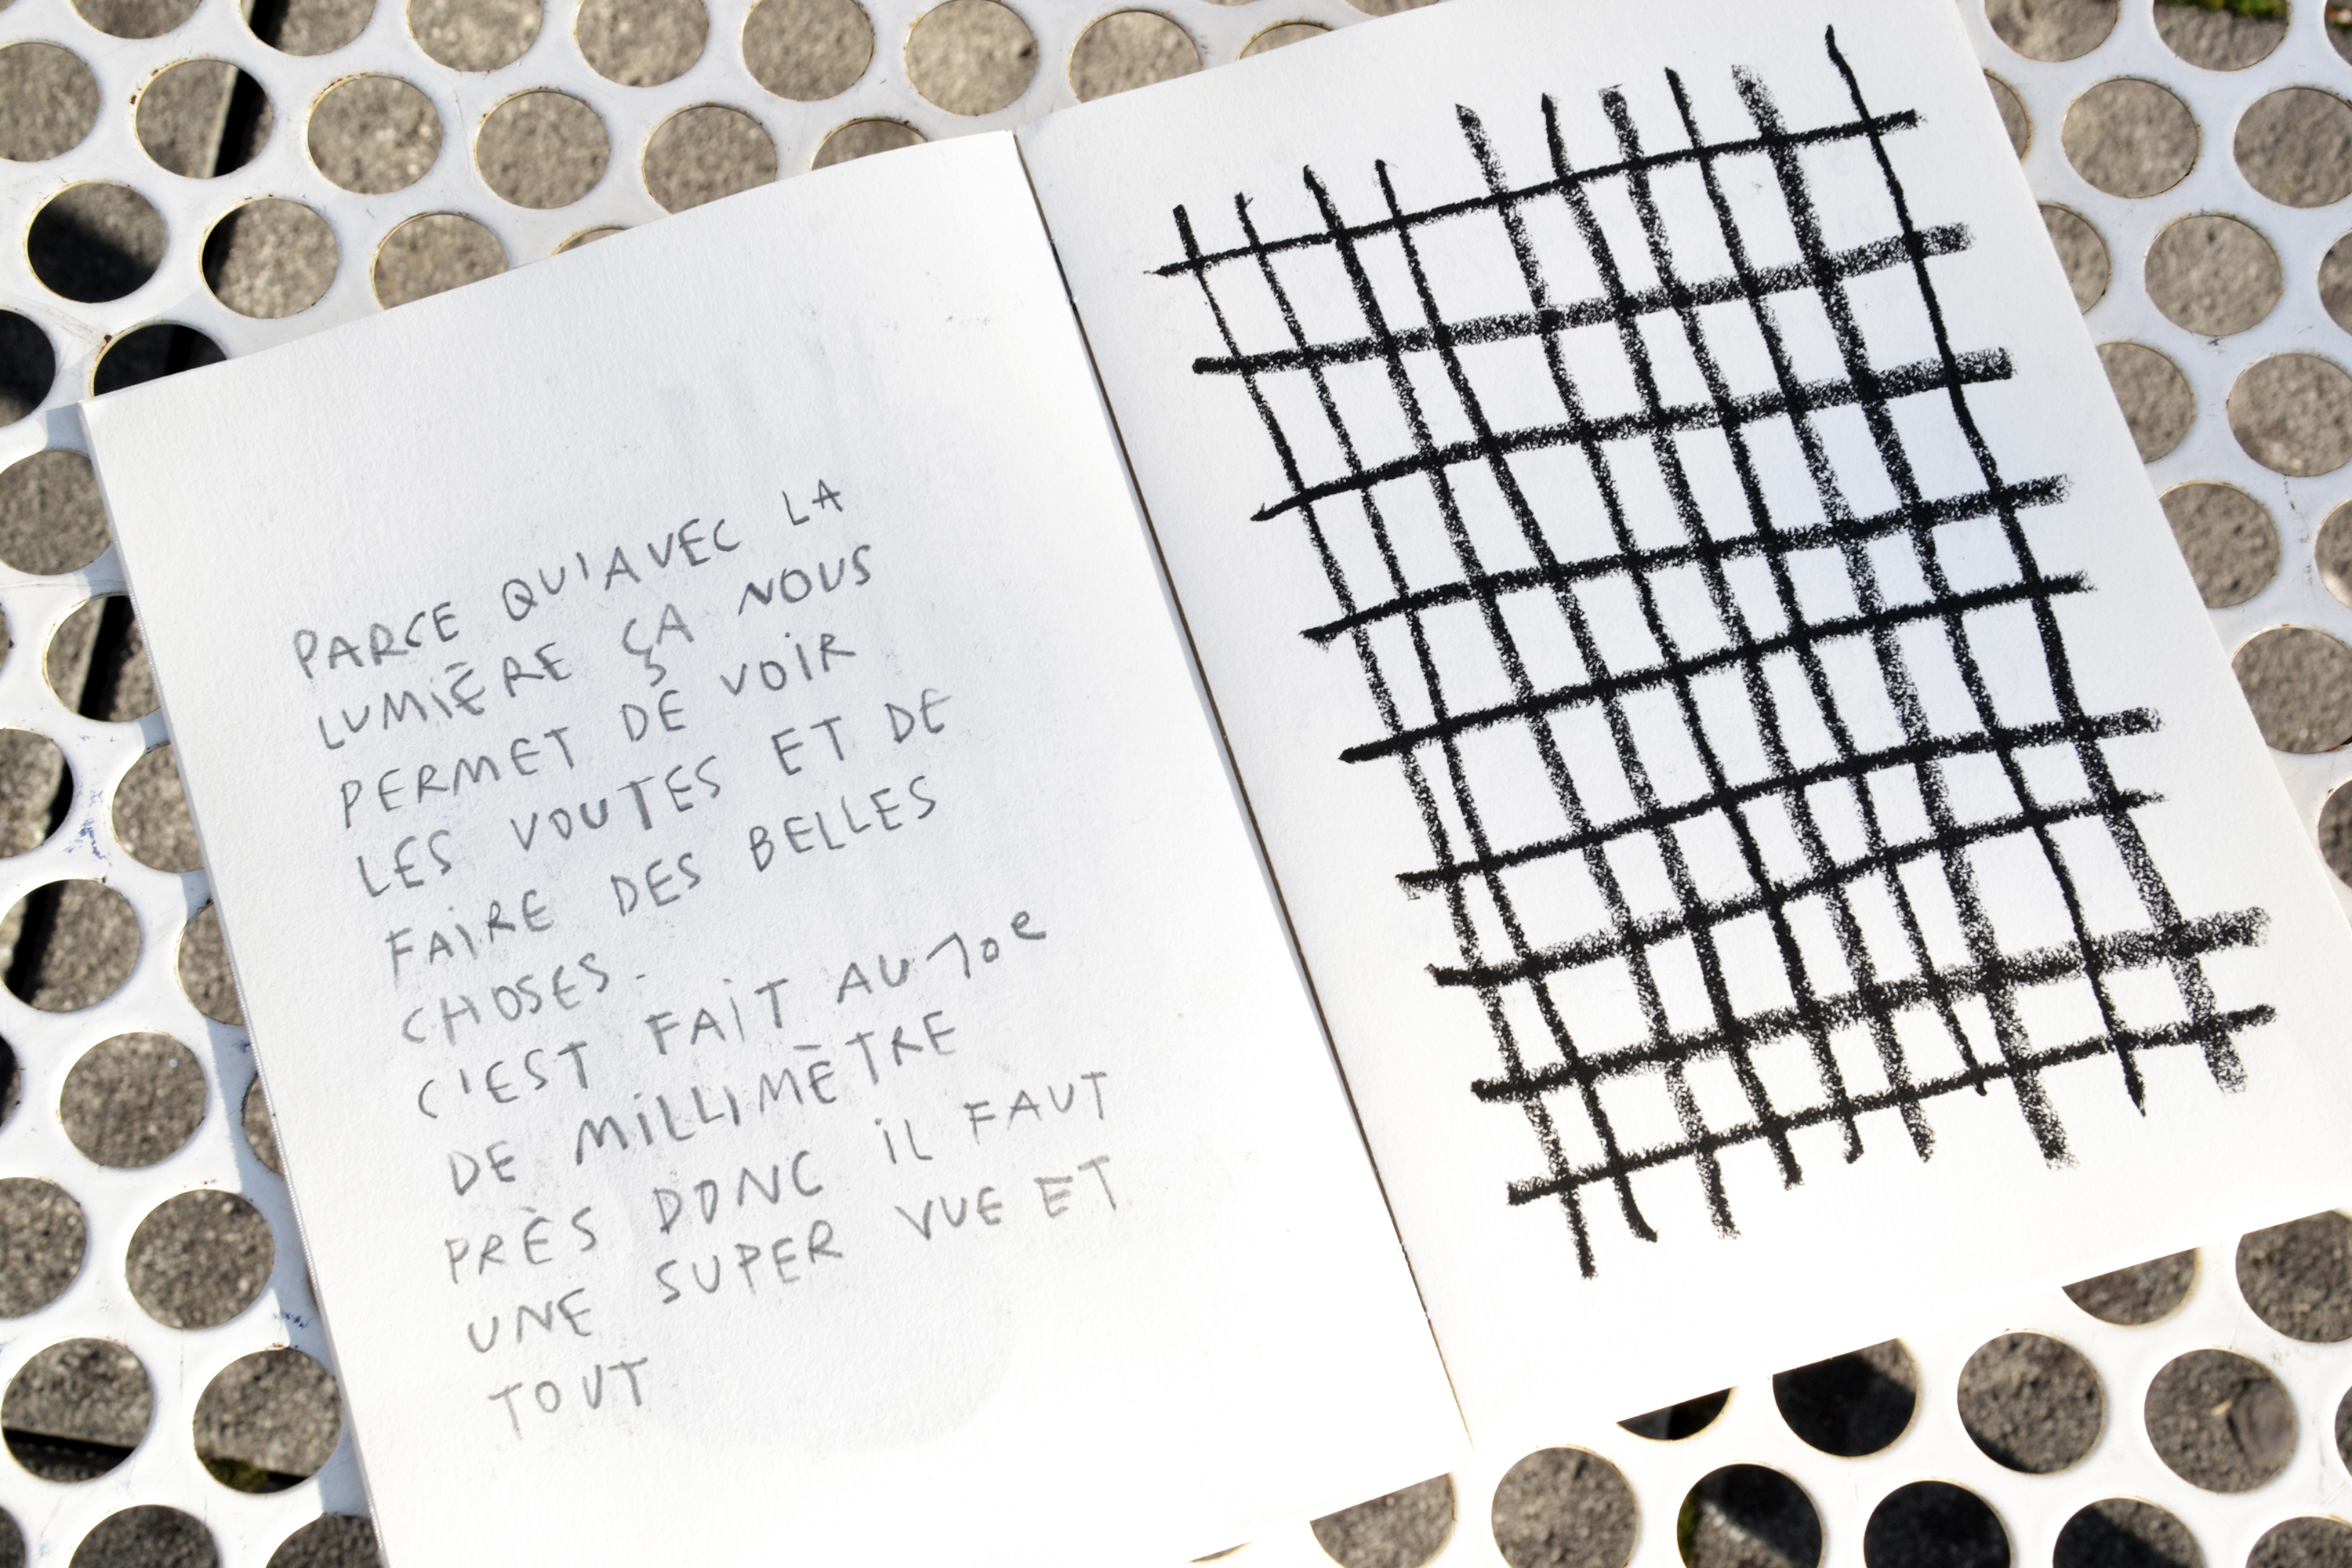 PARCE QU'AVEC LA
LUMIÈRE ÇA NOUS
PERMET DE VOIR
LES VOUTES ET DE
FAIRE DES BELLES
CHOSES.
C'EST FAIT AU 10e
DE MILLIMÈTRE
PRÈS DONC IL FAUT
UNE SUPER VUE ET
TOUT